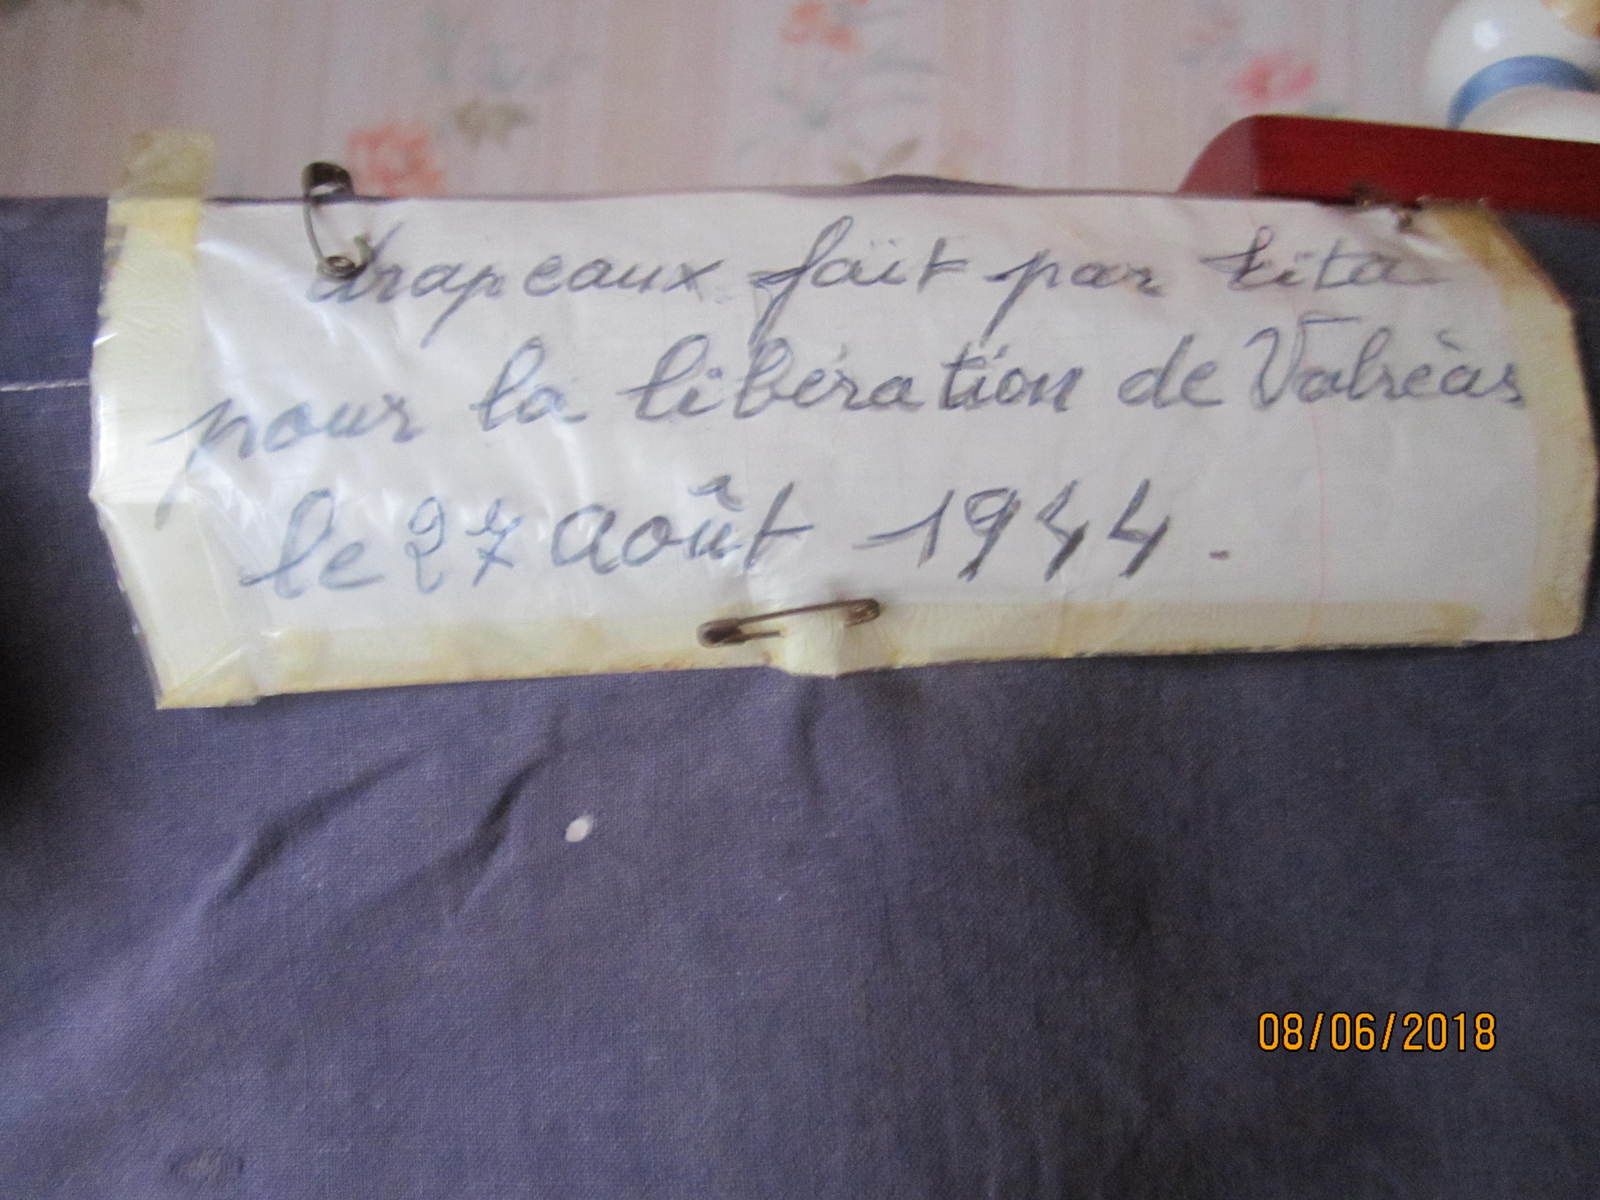 drapeaux faït par tita
pour la libération de Valréas
le 27 août 1944.
08/06/2018